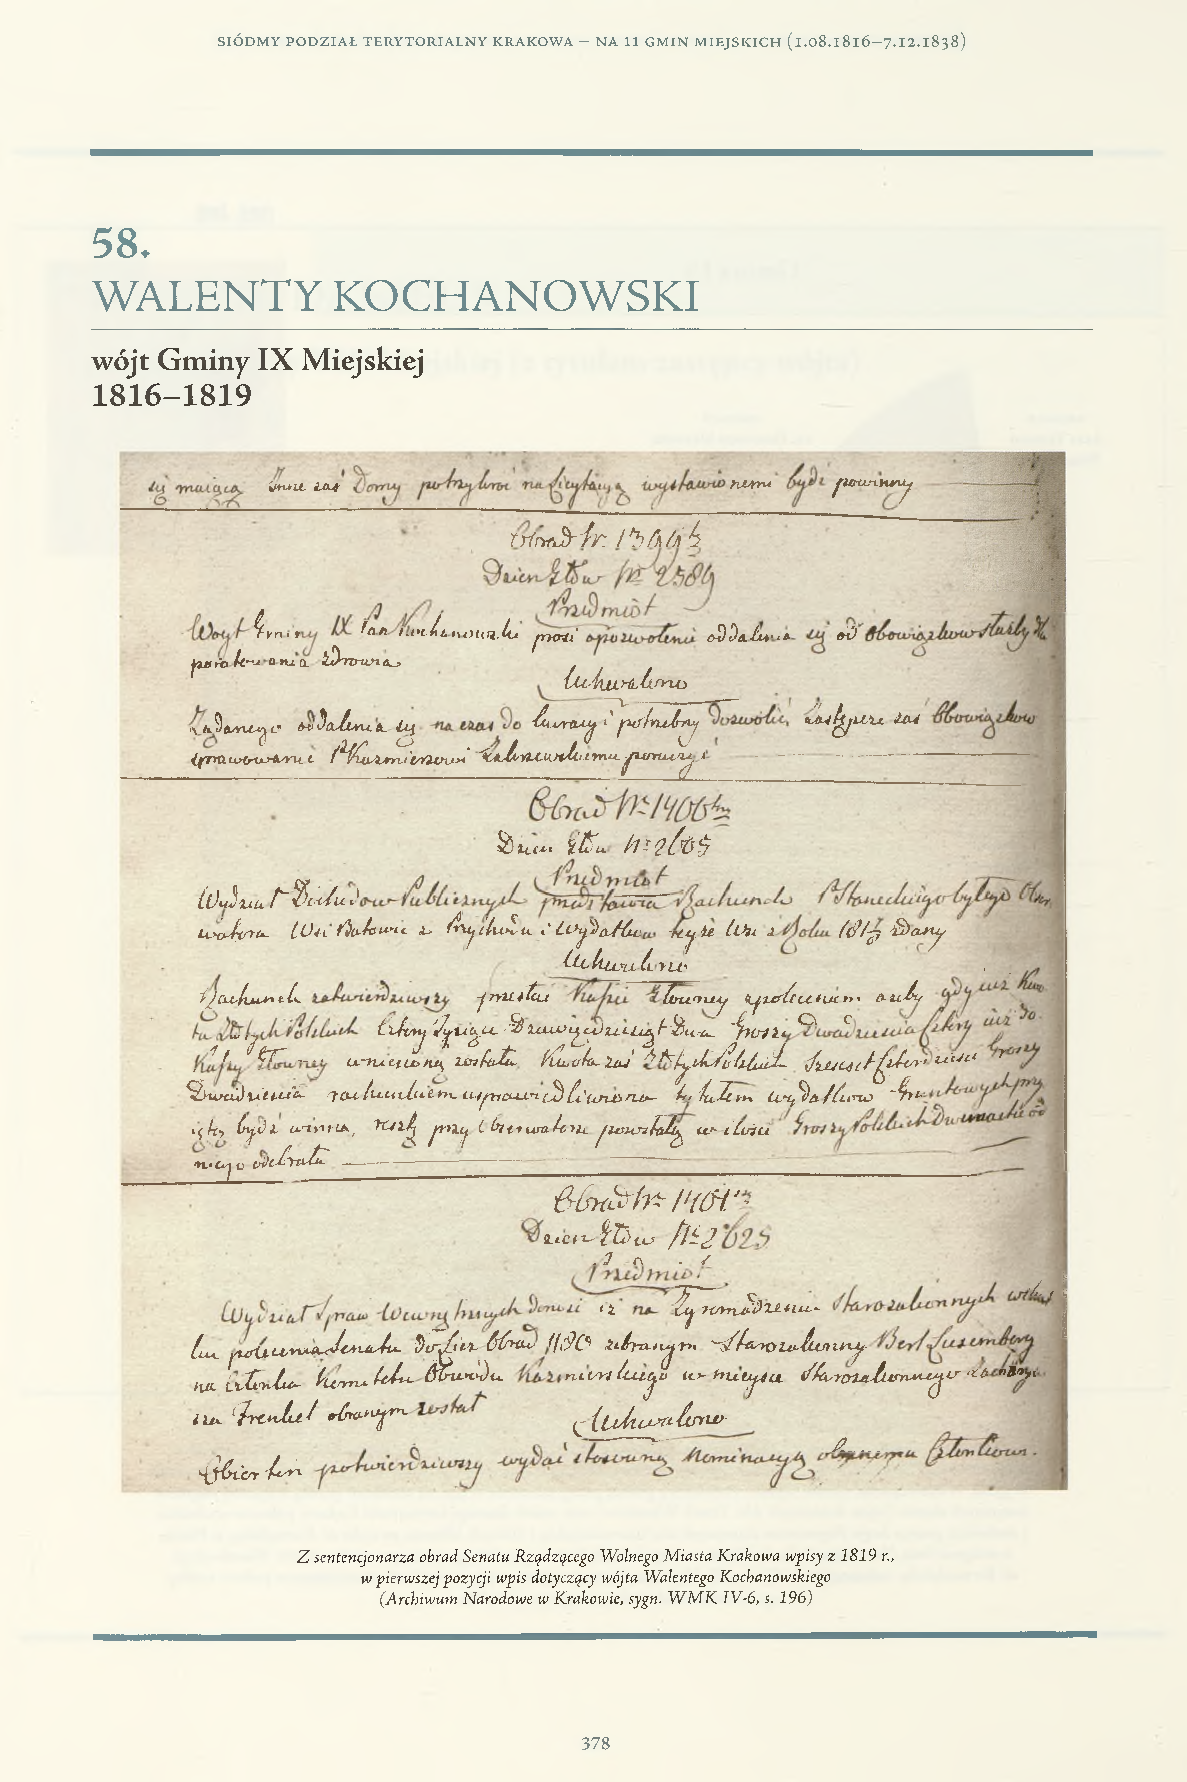 SIÓDMY PODZIAŁ TERYTORIALNY KRAKOWA – NA 11 GMIN MIEJSKICH (1.08.1816–7.12.1838)
58.
WALENTY KOCHANOWSKI
wójt Gminy IX Miejskiej
1816–1819
się maiącą Inne zaś Domy na Licytacyą wystawionemi bydź powinny
Obrad Nr 1399
Dzien: Głów Nr 2589
Przedmiot
Woyt Gminy IX Pan Kochanowski prosi o pozwolenie oddalenia się od Obowiązkow służby dla
poratowania zdrowia
Uchwalono
Żądanego oddalenia się na czas do kuracyi potrzebny dozwolić, Zastępcze zaś Obowiązkow
sprawowanie P. Kazmierzowi Zakrzewskiemu poruczyć
Obrad Nr 1400
Dzien: Głów Nr 2605
Przedmiot
Wydział Dochodow Publicznych przedstawia Rachunek P. byłego
watora Wsi Batowic z Przychodu i Wydatkow teyże Wsi z Roku zdany
Uchwalono
Rachunek zatwierdziwszy przesłać Kassie Głowney z poleceniem ażeby gdy iuż Kwo
ta Złotych Polskich Cztery Tysiące Dziewięćdziesiąt Dwa Groszy Dwadzieścia Cztery iuż do
Kassy Głowney wniesioną została, Kwota zaś Złotych Polskich Sześćset Czterdzieści Groszy
Dwadzieścia rachunkiem usprawiedliwiona tytułem wydatkow Gruntowych przy
iętą bydź winna, resztę przy Obserwatorze pozostałą w ilości Groszy Polskich Dwanaście od
niego odebrała
Obrad Nr 1401
Dzien: Głów Nr 2625
Przedmiot
Wydział Spraw Wewnętrznych donosi iż na Zgromadzeniu Starozakonnych w
ku polecenia Senatu do Licz: Obrad 1180 zebranym Starozakonny Berl Luxemberg
na Członka Komitetu Obwodu Kazmierskiego w mieysce Starozakonnego Zacharya
sza Frenkel obranym został
Uchwalono
Obior ten potwierdziwszy wydać stosowną Nominacyą obranemu Członkowi.
Z sentencjonarza obrad Senatu Rządzącego Wolnego Miasta Krakowa wpisy z 1819 r.,
w pierwszej pozycji wpis dotyczący wójta Walentego Kochanowskiego
(Archiwum Narodowe w Krakowie, sygn. WMK IV-6, s. 196)
378